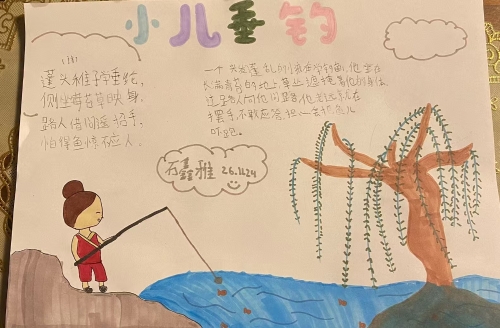 小儿垂钓
蓬头稚子学垂纶,
侧坐莓苔草映身。
路人借问遥招手,
怕得鱼惊不应人。
一个头发蓬乱的小孩在学钓鱼,他坐在
的地上,草丛遮掩着他的身体。
过路人向他问路,他
摆手不敢应答,担心会把鱼儿
吓跑。
石鑫雅 26.11.24